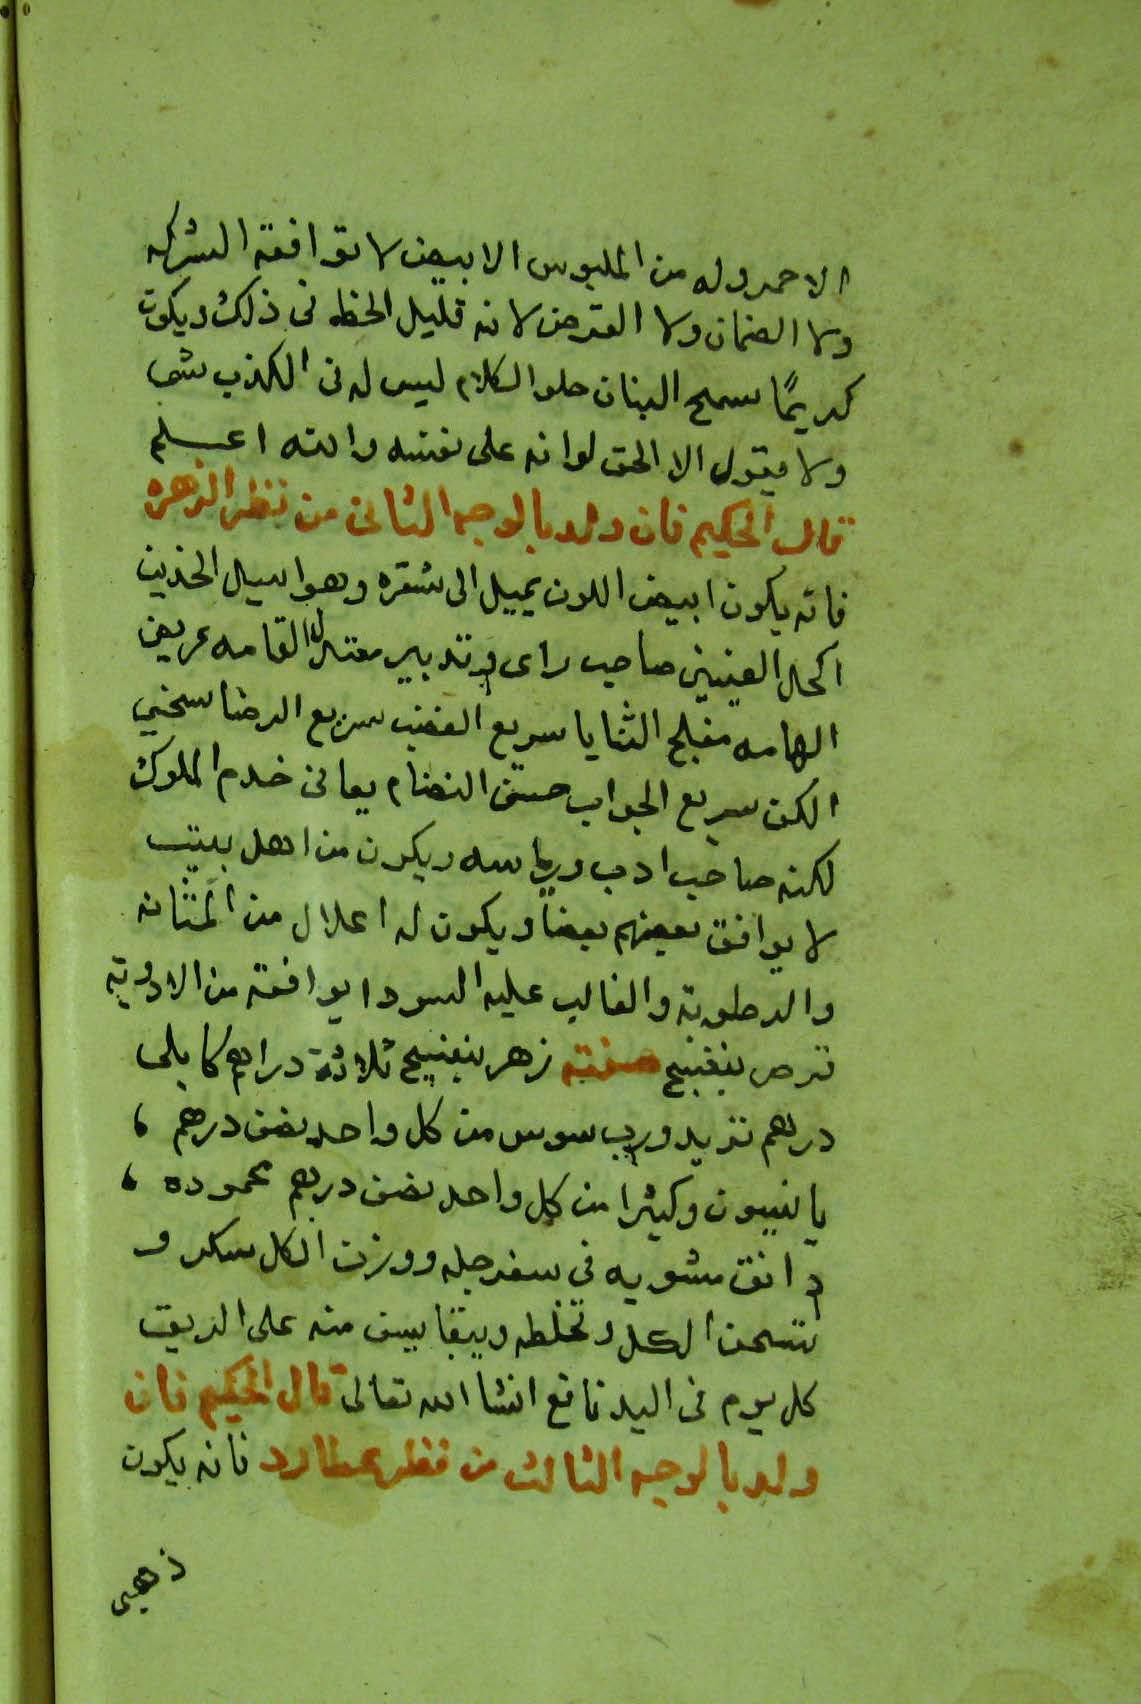 الاحمر وله من الملبوس الابيض لا توافقه الشركه
ولا الضمان ولا القرض لانه قليل الحظ فى ذلك ويكون
كريمًا سمح البنان حلو الكلام ليس له فى الكذب شى
ولا يقول الا الحق لو انه على نفسه والله اعـــلم
قال الحكيم فان ولد بالوجه الثانى من نظر الزهره
فانه يكون ابيض اللون يميل الى شقره وهو اسيل الخدين
اكحل العينين صاحب راى وتدبير معتدل القامه عريض
الهامه مفلج الثنايا سريع الغضب سريع الرضا سخي
الكف سريع الجواب حسن النضام يعانى خدم الملوك
لكنه صاحب ادب ورياسه ويكون من اهل بيت
لا يوافق بعضهم بعضاً ويكون له اعلال من المثانه
والرطوبه والغالب عليه السودا يوافقه من الادويه
قرص بنفسج صفته زهر بنفسج ثلاثة دراهم كابلى
درهم تربد ورب سوس من كل واحد نصف درهم ،
يانيسون وكثيرا من كل واحد نصف درهم محموده ،
دانق مشويه فى سفرجله ووزن الكل سكر و
تسحق الكل وتخلطه ويبقا منه على الريق
كل يوم فى اليد نافع انشا الله تعالى قال الحكيم فان
ولد بالوجه الثالث من نظر عطارد فانه يكون
ذهبى